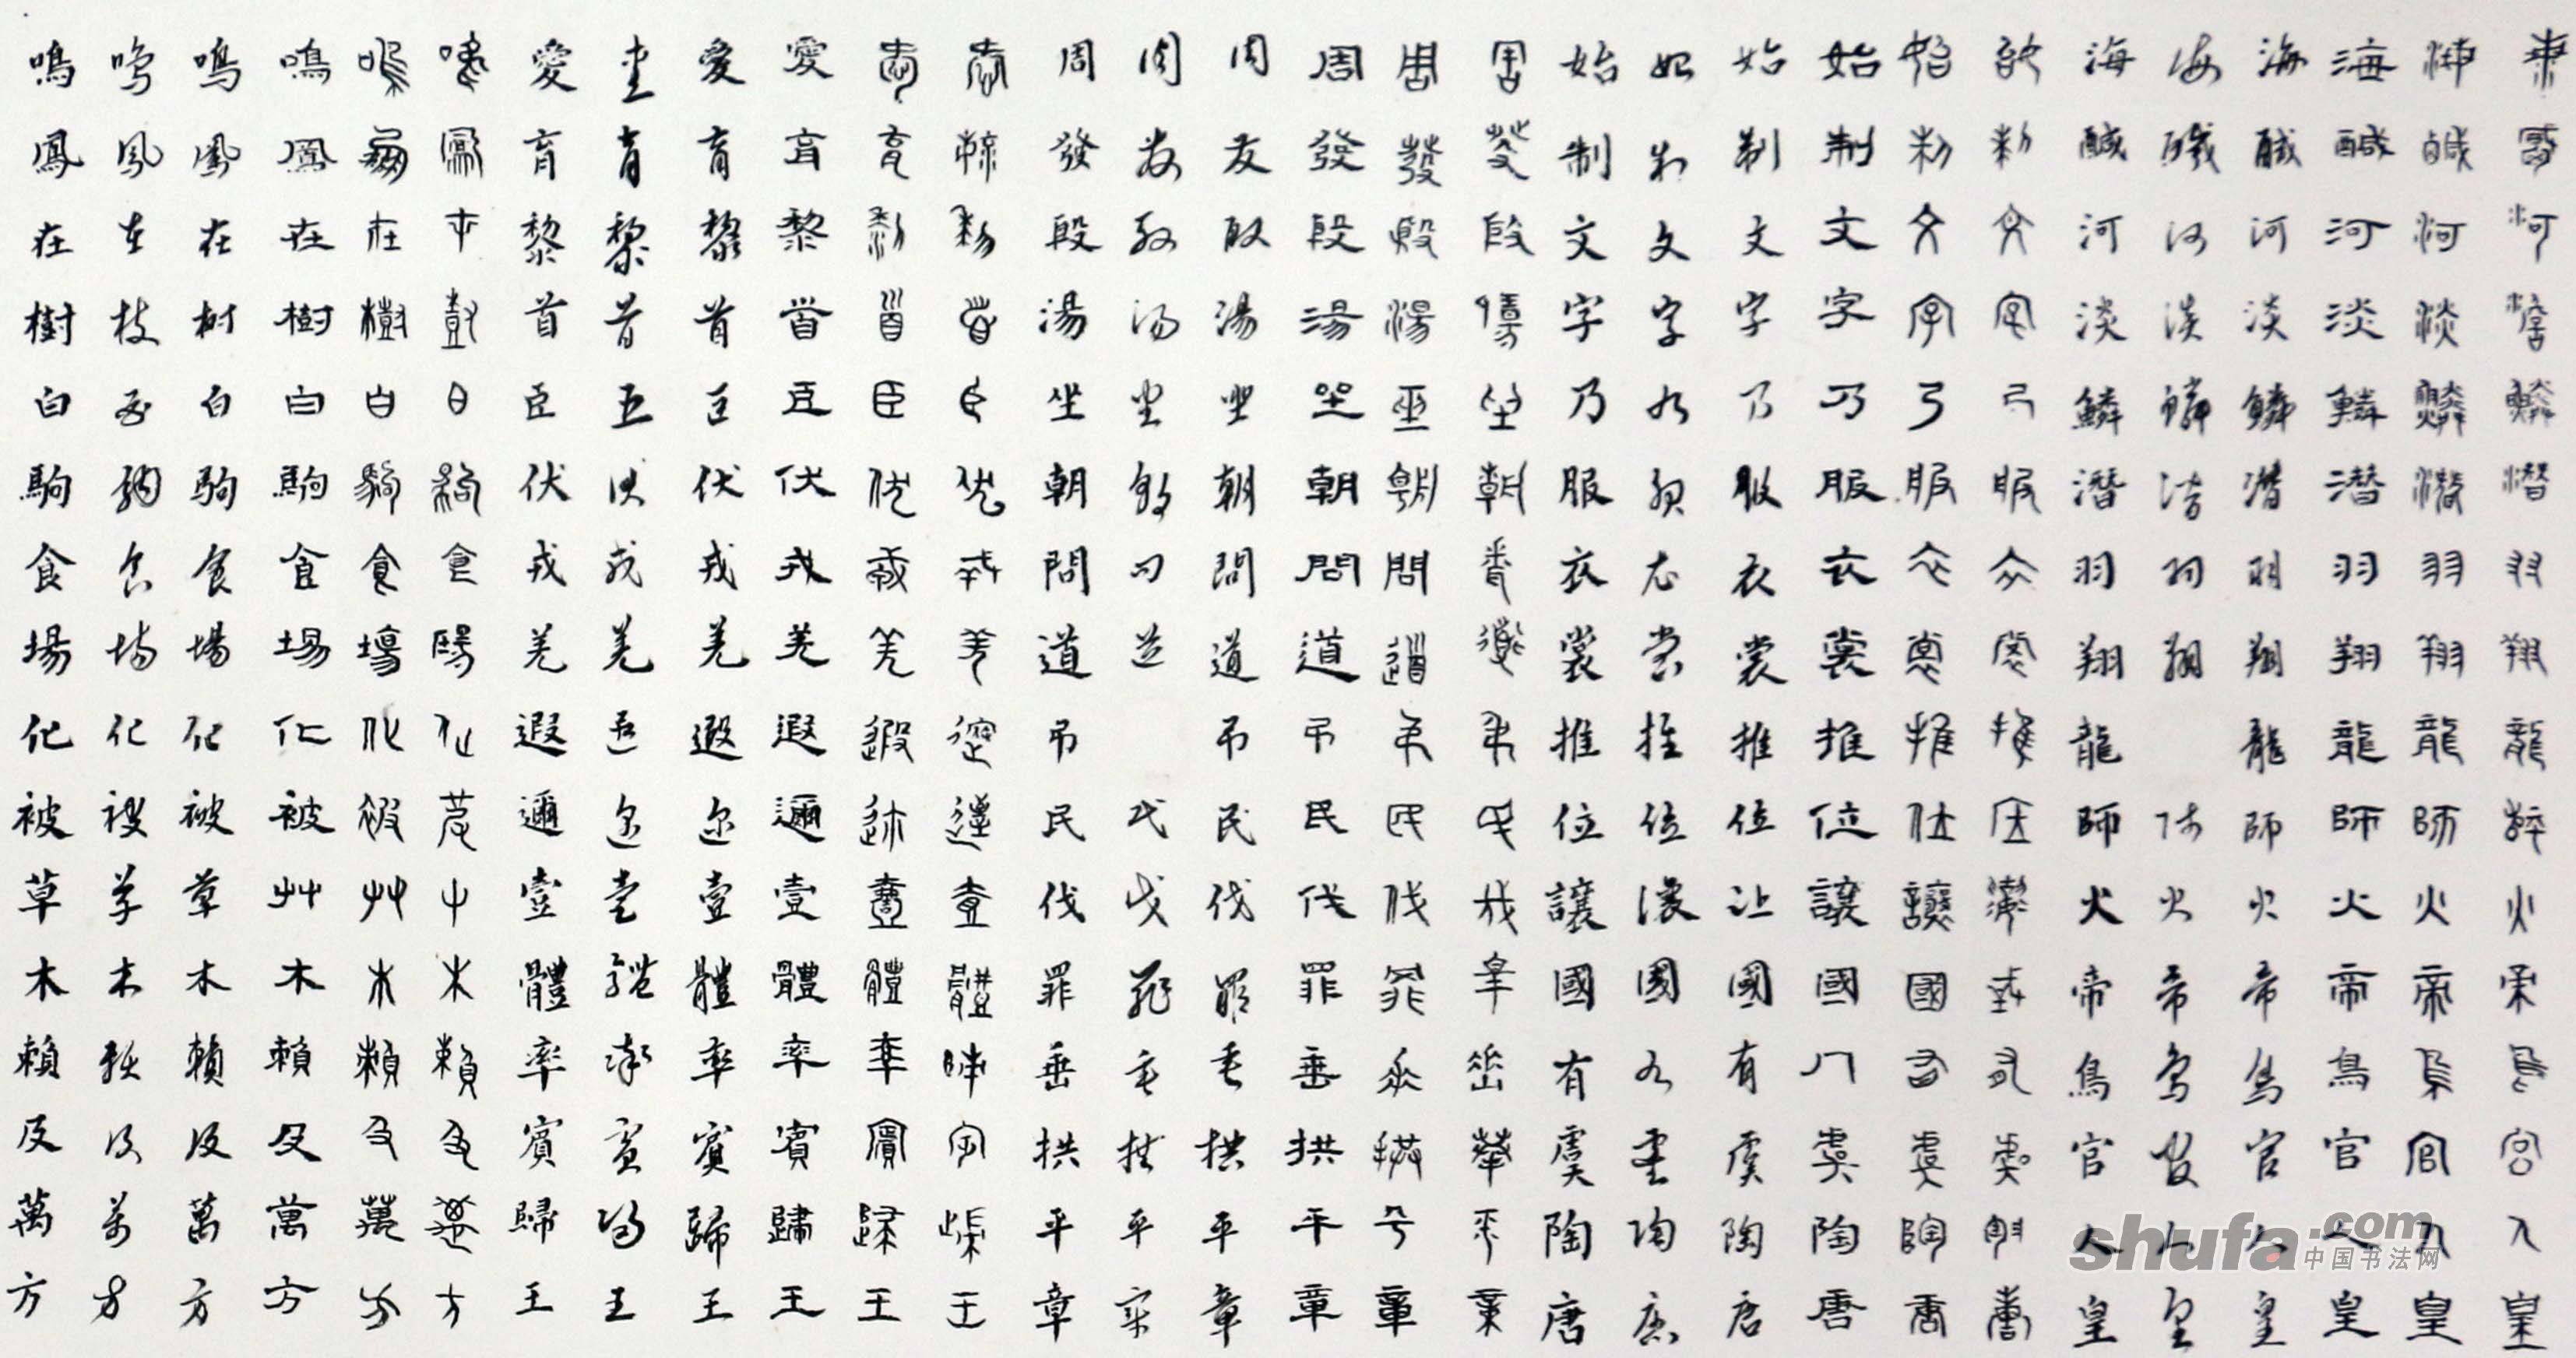 海鹹河淡鱗潛羽翔龍師火帝鳥官人皇
海鹹河淡鱗潛羽翔龍師火帝鳥官人皇
海鹹河淡鱗潛羽翔龍師火帝鳥官人皇
海鹹河淡鱗潛羽翔龍師火帝鳥官人皇
海鹹河淡鱗潛羽翔師火帝鳥官人皇
海鹹河淡鱗潛羽翔龍師火帝鳥官人皇
始制文字乃服衣裳推位讓國有虞陶唐
始制文字乃服衣裳推位讓國有虞陶唐
始制文字乃服衣裳推位讓國有虞陶唐
始制文字乃服衣裳推位让國有虞陶唐
始制文字乃服衣裳推位讓國有虞陶唐
始制文字乃服衣裳推位讓國有虞陶唐
周發殷湯坐朝問道吊民伐罪垂拱平章
周發殷湯坐朝問道吊民伐罪垂拱平章
周發殷湯坐朝問道吊民伐罪垂拱平章
周發殷湯坐朝問道吊民伐罪垂拱平章
周發殷湯坐朝問道民伐罪垂拱平章
周發殷湯坐朝問道吊民伐罪垂拱平章
愛育黎首臣伏戎羌遐邇壹體率賓歸王
愛育黎首臣伏戎羌遐邇壹體率賓歸王
愛育黎首臣伏戎羌遐邇壹體率賓歸王
愛育黎首臣伏戎羌遐迩壹體率賓歸王
愛育黎首臣伏戎羌遐迩壹體率賓歸王
愛育黎首臣伏戎羌遐邇壹體率賓歸王
鳴鳳在樹白駒食場化被草木賴及萬方
鳴鳳在樹白駒食場化被艸木賴及萬方
鳴鳳在樹白駒食場化被艸木賴及萬方
鳴鳳在樹白駒食場化被草木賴及萬方
鳴鳳在樹白駒食場化被草木賴及萬方
鳴鳳在樹白駒食場化被草木賴及萬方
shufa.com
中国书法网